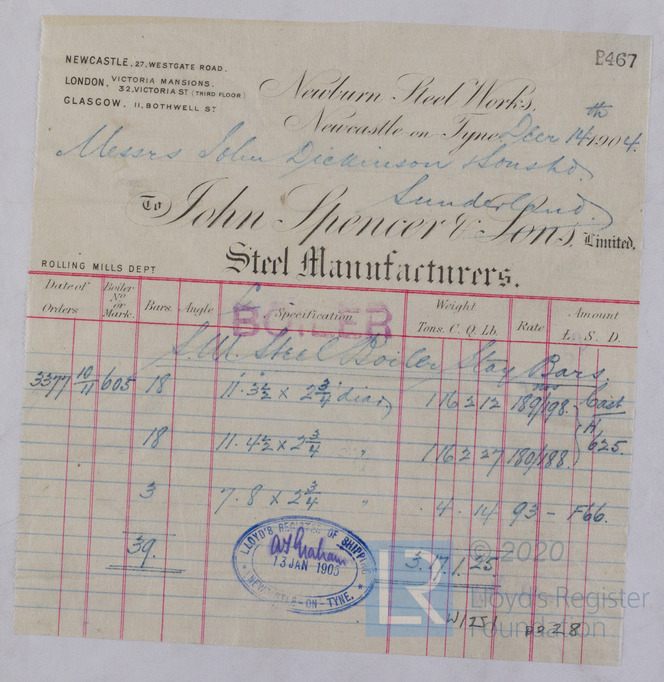 P467
NEWCASTLE, 27, WESTGATE ROAD.
LONDON, VICTORIA MANSIONS,
32, VICTORIA ST (THIRD FLOOR)
GLASGOW, 11, BOTHWELL ST
Newburn Steel Works,
Newcastle on Tyne, Decr 14th 1904.
Messrs John Dickinson & Sons Ltd.
Sunderland.
To John Spencer & Sons, Limited.
Steel Manufacturers.
ROLLING MILLS DEPT
Date of Orders Boiler No or Mark. Bars. Angle Specification Weight Tons. C. Q. Lb. Rate Amount L. S. D.
BOILER
S.M. Steel Boiler Stay Bars
3377 10/11 605 18 11. 3 1/2 x 2 3/4 diar 1 16 2 12 189/198. Cast
18 11. 4 1/2 x 2 3/4 " 1 16 2 27 180/188. H, 625.
3 7. 8 x 2 3/4 " 4. 14 93 - F66.
39. 3. 17. 1. 25
LLOYD'S REGISTER OF SHIPPING
13 JAN 1905
NEWCASTLE-ON-TYNE.
LR
© 2020
Lloyd's Register
Foundation
W1251 28